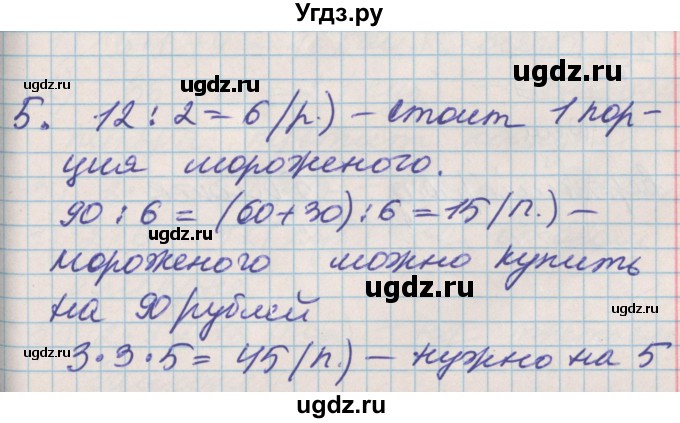 Угдз.ру
ugdz.ru ugdz.ru ugdz.ru
5. 12 : 2 = 6 (р.) – стоит 1 пор-
ugdz.ru
ция мороженого.
90 : 6 = (60+30) : 6 = 15 (п.) –
ugdz.ru ugdz.ru
мороженого можно купить
ugdz.ru
на 90 рублей
ugdz.ru ugdz.ru ugdz.ru
3 · 3 · 5 = 45 (п.) – нужно на 5
ugdz.ru